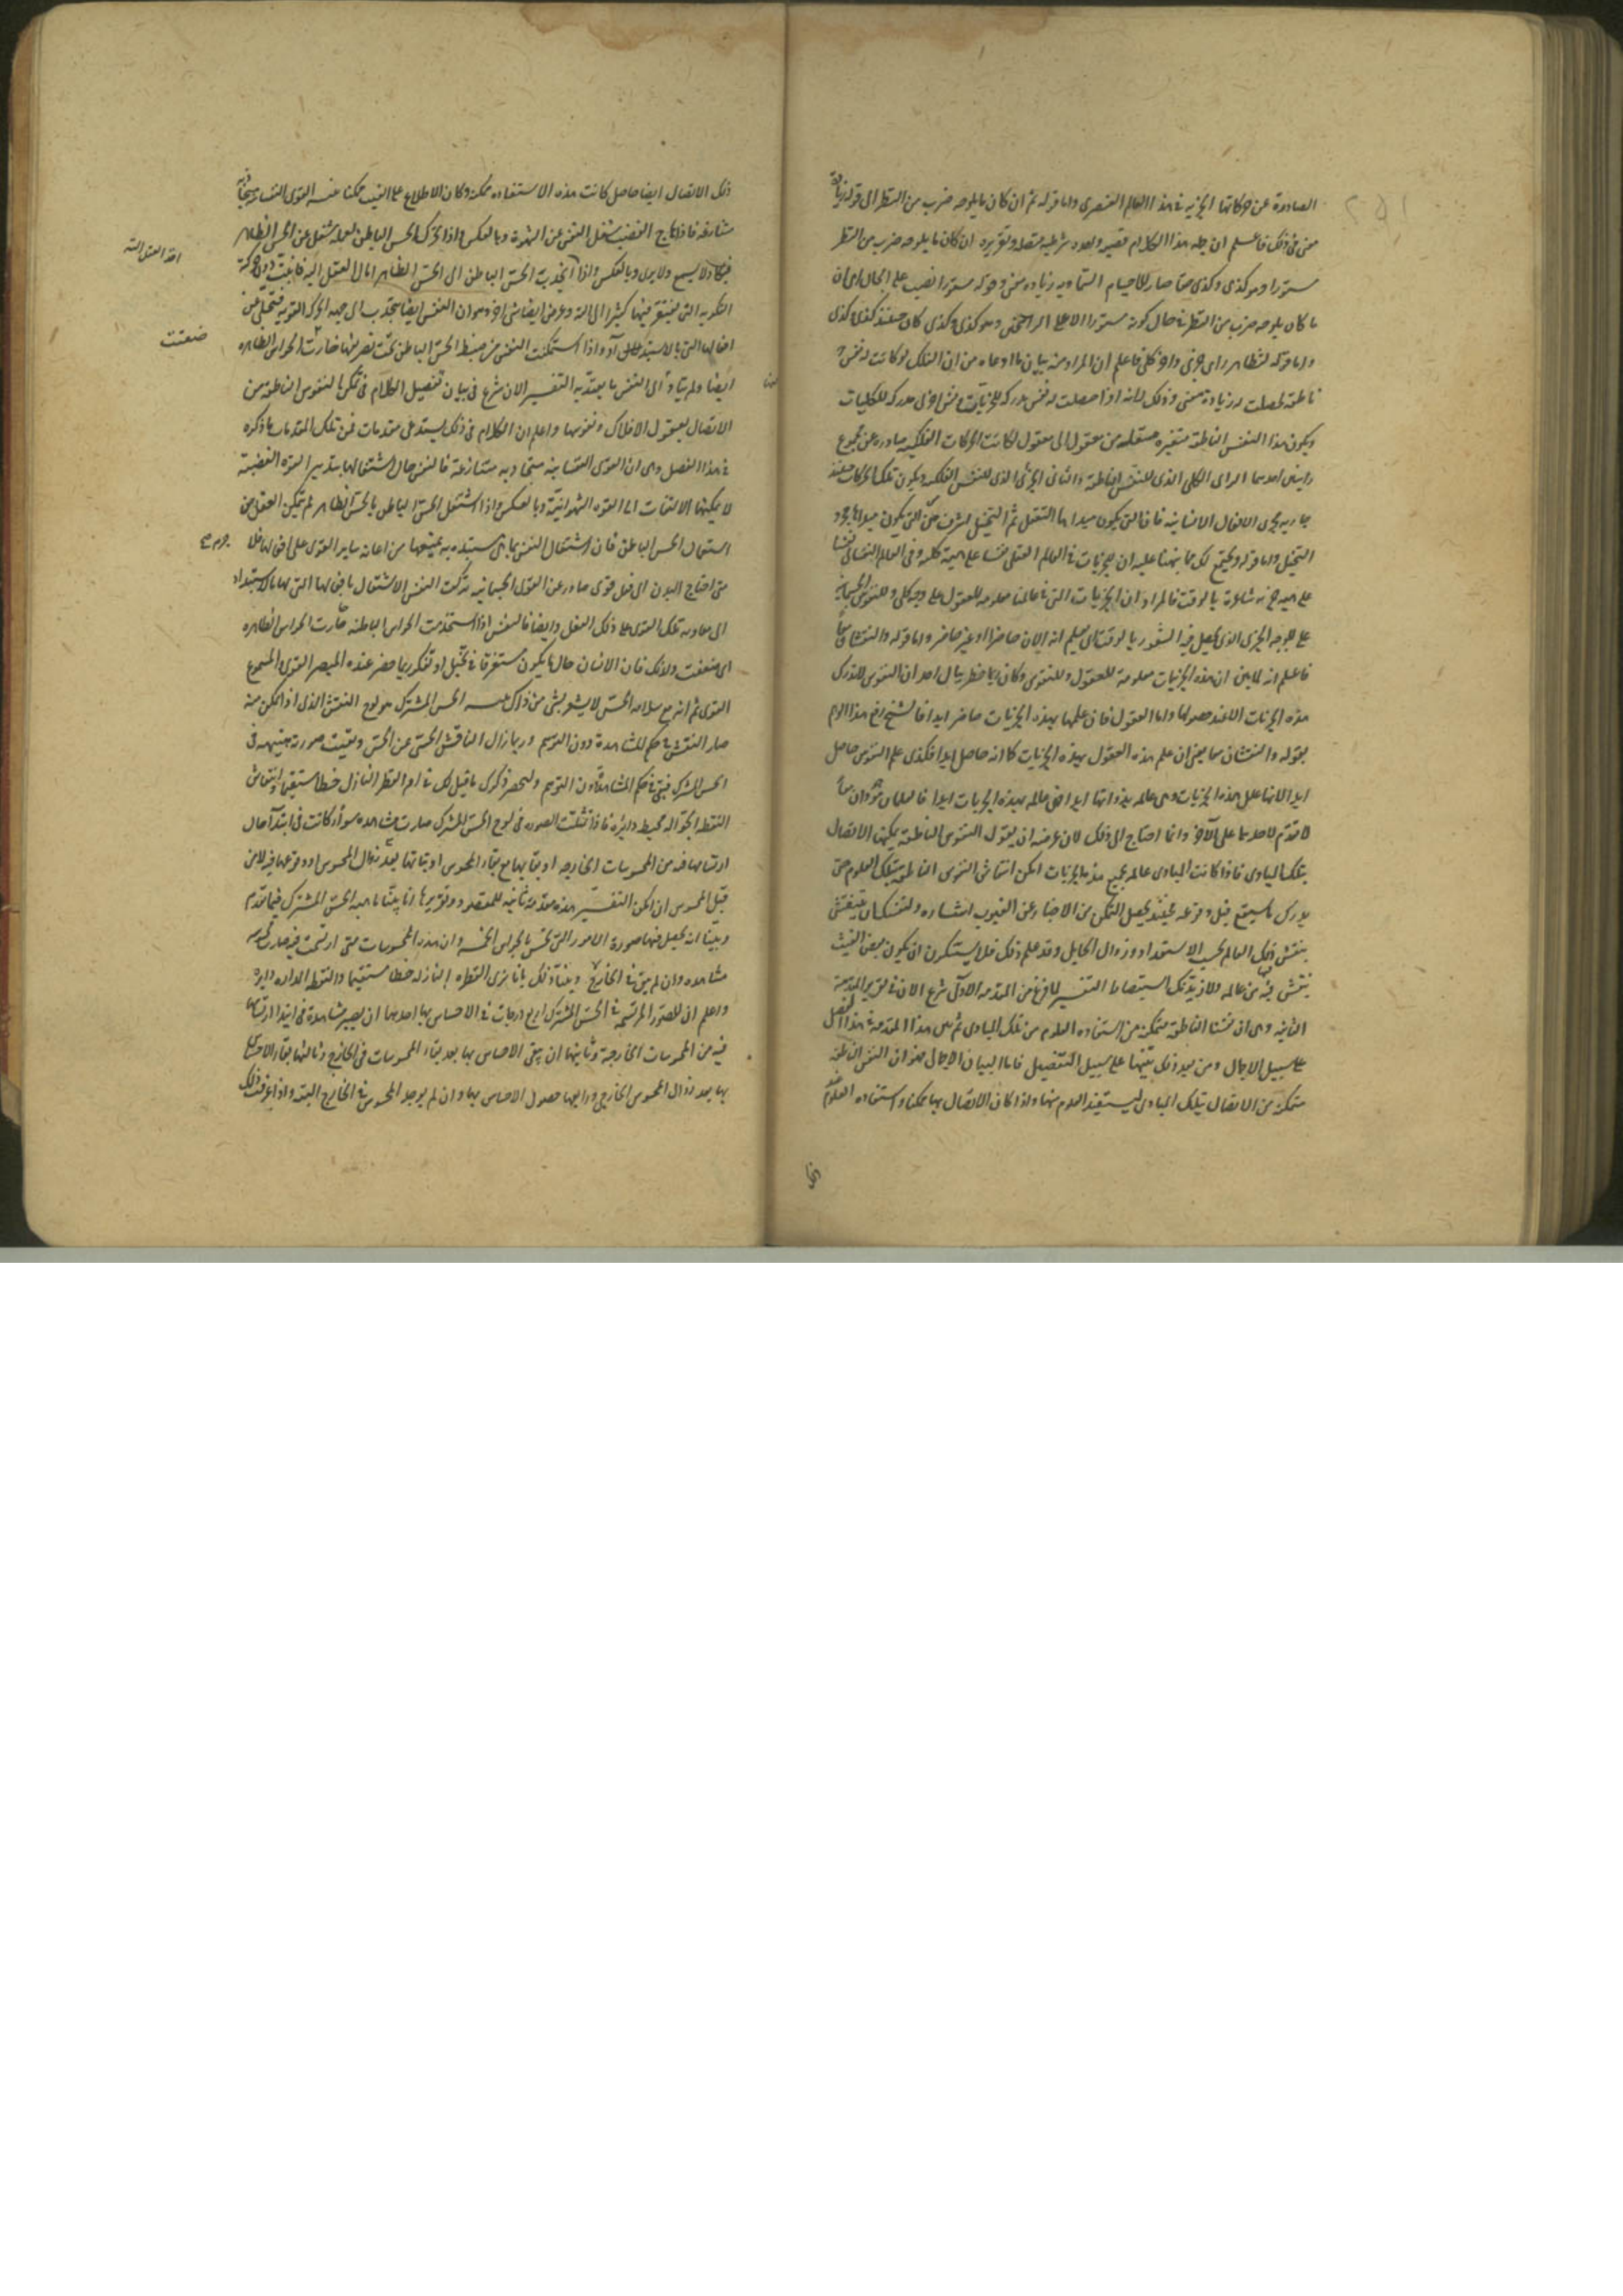 الصادرة عن حركاتها الجزئيه فى هذا العالم العنصرى واما قوله ثم ان كان ما يلوحه ضرب من النظر الى قوله زيادة
معنى فى ذلك فاعلم ان جمله هذا الكلام قضيه واحده شرطيه متصله وتقريره ان كان ما يلوحه ضرب من النظر
مستورا وهو كذى وكذى حقا صار للاجسام السماويه زياده معنى وقوله مستورا نصب على الحال اى ان
ما كان يلوحه ضرب من النظر فى حال كونه مستورا الا على الراسخين وهو كذى وكذى كان حينئذ كذى وكذى
واما قوله لتظاهر راى جزئى واخر كلى فاعلم ان المراد منه بيان ما ادعاه من ان الفلك لو كانت له نفس
ناطقه لحصلت له زيادة معنى وذلك لانه اذا حصلت له نفس مدركه للجزئيات ونفس اخرى مدركه للكليات
ويكون هذا النفس الناطقه متغيره منتقله من معقول الى معقول لكانت الحركات الفلكيه صادره عن مجموع
رايين احدهما الراى الكلى الذى للنفس الناطقة والثانى الجزئى الذى للنفس الفلكيه ويكون تلك الحركات حينئذ
جاريه مجرى الافعال الانسانيه فانها التى يكون مبداها التعقل ثم التخيل اشرف من التى يكون مبداها مجرد
التخيل واما قوله ويجتمع لك مما نبهنا عليه ان للجزئيات فى العالم العقلى نقشا على هيئة كليه وفى العالم النفسانى نقشا
على هيئه جزئيه شاعرة بالوقت فالمراد ان الجزئيات التى فى عالمنا معلومه للعقول على وجه كلى وللنفوس الجسمانيه
على الوجه الجزئى الذى يحصل فيه الشعور بالوقت اى يعلم انه الان حاضر او غير حاضر واما قوله والنقشان معا
فاعلم انه لما بين ان هذه الجزئيات معلومة للعقول وللنفوس وكان ربما خطر ببال احد ان النفوس لا تدرك
هذه الجزئيات الا عند حصولها واما العقول فان علمها بهذه الجزئيات حاضر ابدا فالشيخ رفع هذا الوهم
بقوله والنقشان معا يعنى ان علم هذه العقول بهذه الجزئيات كما انه حاصل ابدا فكذى علم النفوس حاصل
ابدا لانها علل هذه الجزئيات وهى عالمه بذواتها ابدا فهى عالمه بهذه الجزئيات ابدا فالعلمان موجودان معا
لا تقدم لاحدهما على الآخر وانما احتاج الى ذلك لان غرضه ان يقول النفوس الناطقه يمكنها الاتصال
بتلك المبادى فاذا كانت المبادى عالمه بجميع هذه الجزئيات امكن انتقاش النفوس الناطقه بتلك العلوم حتى
يدرك ما سيقع قبل وقوعه فحينئذ يحصل التمكن من الاخبار عن الغيوب اشاره ولنفسك ان تنتقش
بنقش ذلك العالم بحسب الاستعداد وزوال الحايل وقد علم ذلك فلا يستنكرن ان يكون بعض الغيب
ينتقش فيها من عالمه ولازيدنك استبصارا التفسير لما فرغ من المقدمه الاولى شرع الان فى تقرير المقدمة
الثانيه وهى ان نفسنا الناطقة متمكنه من استفاده العلوم من تلك المبادى ثم بين هذا المقدمة فى هذا الفصل
على سبيل الاجمال ومن بعد ذلك يبينها على سبيل التفصيل فاما البيان الاجمالى فهو ان النفس الناطقه
متمكنه من الاتصال بتلك المبادى ليستفيد العلوم منها واذا كان الاتصال بها ممكنا واستفاده العلوم عند
ذلك الاتصال ايضا حاصل كانت هذه الاستفاده ممكنه وكان الاطلاع على الغيب ممكنا تنبيه القوى النفسانيه متجاذبه
متنازعه فاذا هاج الغضب شغل النفس عن الشهوة وبالعكس واذا تجرد الحس الباطن لعمله شغل عن الحس الظاهر
فيكاد لا يسمع ولا يرى وبالعكس واذا انجذب الحس الباطن الى الحس الظاهر امال العقل اليه فانبت دون حركته
الفكريه التى يفتقر فيها كثيرا الى الته وعرض ايضا شى اخر وهو ان النفس ايضا تنجذب الى جهه الحركه القويه فتتخلى عن
افعالها التى بالاستبداد واذا استمكنت النفس من ضبط الحس الباطن تحت تصرفها خارت الحواس الظاهره
ايضا ولم يتأد الى النفس ما يعتد به التفسير الان شرع فى بيان تفصيل الكلام فى تمكن النفوس الناطقه من
الاتصال بعقول الافلاك ونفوسها واعلم ان الكلام فى ذلك يستدعى مقدمات فمن تلك المقدمات ما ذكره
فى هذا الفصل وهى ان القوى النفسانيه متجاذبه متنازعة فالنفس حال اشتغالها بتدبير القوة الغضبية
لا يمكنها الالتفات الى القوه الشهوانية وبالعكس واذا اشتغل الحس الباطن بالحس الظاهر لم يتمكن العقل من
استعمال الحس الباطن فان اشتغال النفس بما يستبد به يمنعها من اعانه ساير القوى على افعالها فلا جرم
متى احتاج البدن الى فعل قوى صادر عن القوى الجسمانيه تركت النفس الاشتغال بافعالها التى لها بالاستبداد
الى معاونه تلك القوى على ذلك الفعل وايضا فالنفس اذا استخدمت الحواس الباطنه خارت الحواس الظاهره
اى ضعفت ولذلك فان الانسان حال ما يكون مستغرقا فى تخيل او تفكر ربما حضر عنده المبصر القوى والمسموع
القوى ثم انه مع سلامه الحس لا يشعر بشى من ذلك تنبيه الحس المشترك هو لوح النقش الذى اذا تمكن منه
صار النقش فى حكم المشاهدة دون التوهم وربما زال الناقش الحسى عن الحس وبقيت صورته هنيهه فى
الحس المشترك فبقى فى حكم المشاهد دون التوهم وليحضر ذكرك ما قيل لك فى امر القطر النازل خطا مستقيما وانتقاش
النقطه الجواله محيط دايره فاذا تمثلت الصوره فى لوح الحس المشترك صارت مشاهده سواء كانت فى ابتدآ حال
ارتسامها فيه من المحسوسات الخارجه او بقائها مع بقاء المحسوس او ثباتها بعد زوال المحسوس او وقوعها فيه لا من
قبل المحسوس ان امكن التفسير هذه مقدمة ثانيه للمقصود وتقريرها انا بينا ماهيه الحس المشترك فيما تقدم
وبينا انه يحصل فيها صورة الامور التى تحس بالحواس الخمسه وان هذه المحسوسات متى ارتسمت فيه صارت محسوسه
مشاهده وان لم يبق فى الخارج وبينا ذلك بانا نرى القطره النازله خطا مستقيما والنقطه الدايره دايره
واعلم ان للصور المرتسمه فى الحس المشترك اربع درجات فى الاحساس بها احدها ان يصير مشاهدة فى ابتدا ارتسامها
فيه من المحسوسات الخارجة وثانيها ان يبقى الاحساس بها بعد بقاء المحسوسات فى الخارج وثالثها بقاء الاحساس
بها بعد زوال المحسوس الخارجى ورابعها حصول الاحساس بها وان لم يوجد المحسوس فى الخارج البته واذا عرفت ذلك
ضعفت